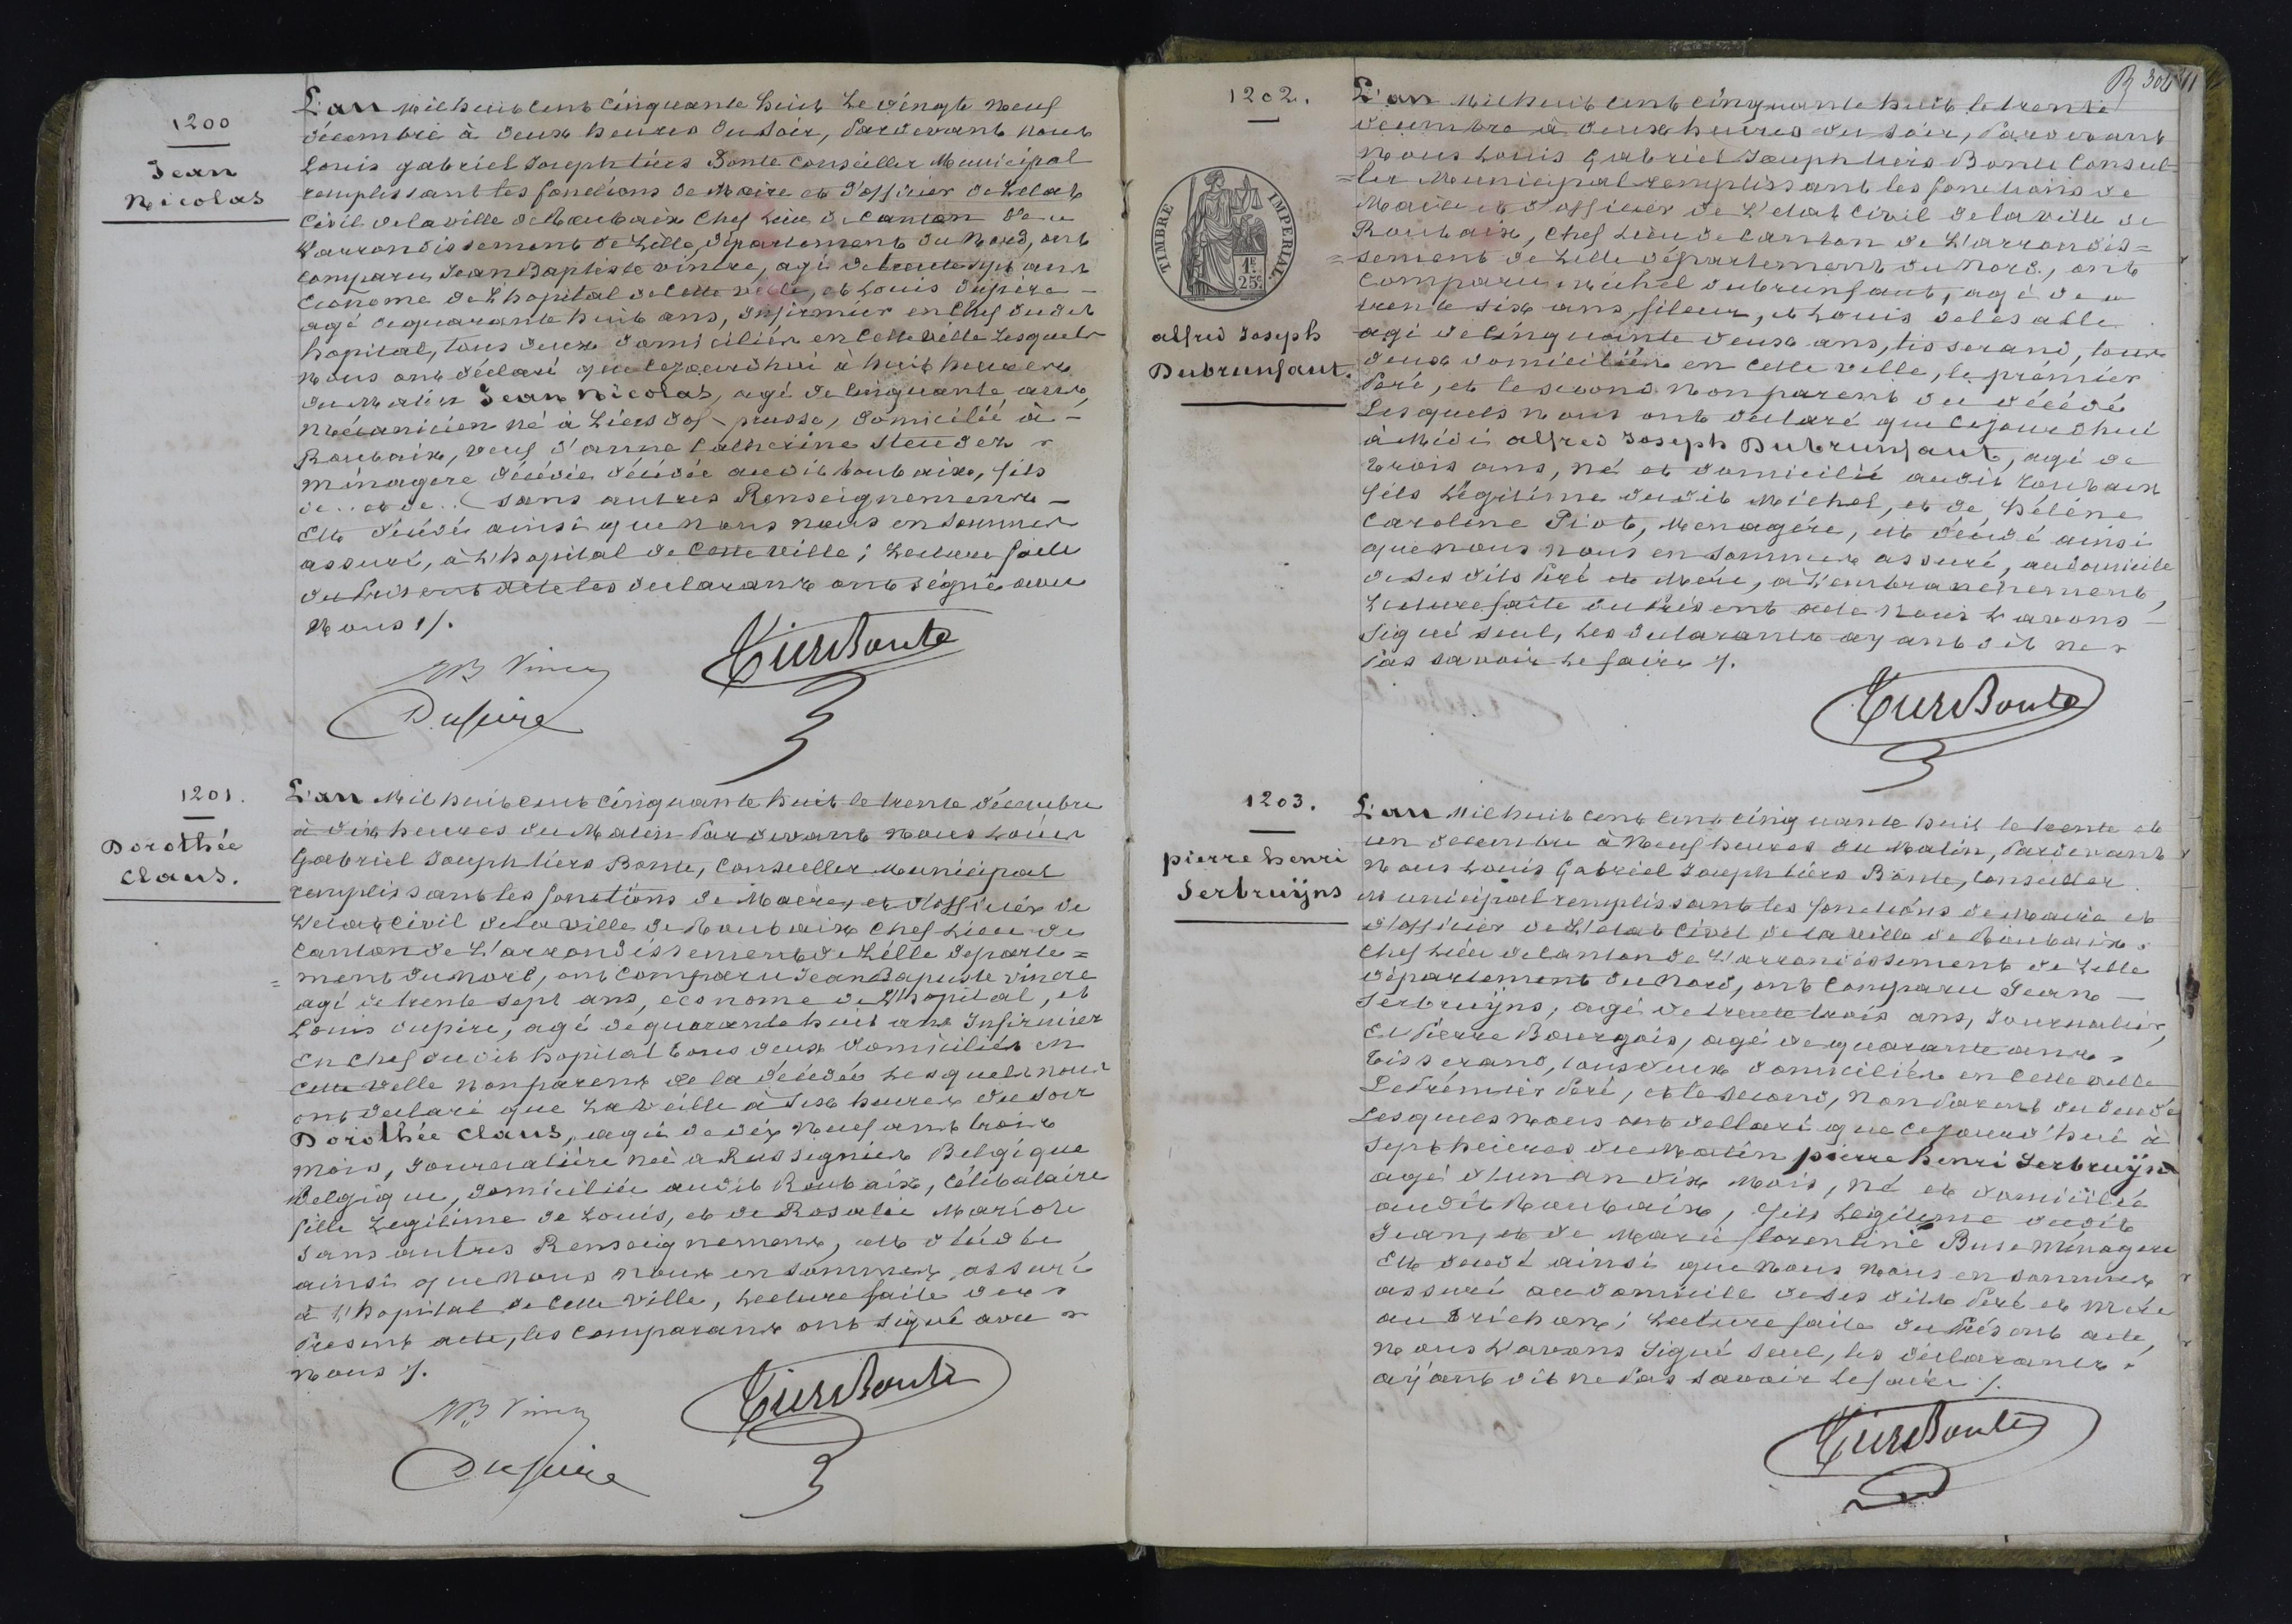 1200
Jean
Nicolas
L'an mil huit cent cinquante huit le vingt neuf
décembre à deux heures du soir, Pardevant nous
Louis gabriel Joseph tiers Bonte Conseiller Municipal
remplissant les fonctions de Maire et d'officier de L'etat
Civil de la ville de Roubaix Chef Lieu de Canton de
L'arrondissement de Lille, département du Nord, ont
comparu Jean Baptiste vincre, agé de trente sept ans
Econome de L'hopital de Cette ville, et Louis dupire
agé de quarante huit ans, Infirmier en Chef dudit
hopital, tous deux domiciliés en Cette ville Lesquels
Nous ont déclaré que Cejourdhui à huit heures
du Matin Jean Nicolas, agé de Cinquante ans,
Mécanicien né à prusse, domicilié à
Roubaix, veuf d'anne Catherine Steuder
ménagère décédée audit Roubaix, fils
de .. et de .. ( sans autres Renseignements
Est décédé ainsi que nous nous en sommes
assuré, à L'hopital de Cette ville ; Lecture faite
du Présent acte les déclarants ont signé avec
Nous ./.
JB Vincre
TiersBonte
Dupire
1201.
Dorothée
Claus.
L'an Mil huit cent Cinquante huit le trente décembre
à dix heures du Matin Pardevant nous Louis
Gabriel Joseph tiers Bonte, Conseiller Municipal
remplissant les fonctions de Maire, et d'officier de
L'etat Civil de la ville de Roubaix Chef Lieu de
Canton de L'arrondissement de Lille departe=
=ment du Nord, ont Comparu Jean Baptiste vincre
agé de trente sept ans, économe de L'hopital, et
Louis dupire, agé de quarante huit ans Infirmier
en Chef dudit hopital tous deux domiciliés en
Cette ville non parents de la décédée Lesquels nous
ont déclaré que La veille à six heures du soir
Dorothée Claus, agée de dix neuf ans trois
mois, Journalière née à Russegnies Belgique
Belgique, domiciliée audit Roubaix, Célibataire
fille Legitime de Louis, et de Rosalie
sans autres Renseignements, est décédée
ainsi que nous nous en sommes assuré
à L'hopital de Cette ville, Lecture faite du
Present acte, les Comparants ont signé avec
nous ./.
JB Vincre
TiersBonte
Dupire
1202.
TIMBRE IMPERIAL.
1F 25C
alfred Joseph
Dubrunfaut.
L'an Mil huit cent cinquante huit le trente
decembre à deux heures du soir, Pardevant
Nous Louis Gabriel Joseph tiers Bonte Conseil
=ler Municipal remplissant les fonctions de
Maire et d'officier de L'etat Civil de la ville de
Roubaix, Chef Lieu de Canton de L'arrondis=
=sement de Lille département du Nord, ont
comparu Michel dubrunfaut, agé de
trente six ans, fileur, et Louis delesalle
agé de Cinquante deux ans, tisserand, tous
deux domiciliés en Cette ville, le prémier
Peré, et le second non parent du décédé
Lesquels nous ont déclaré que Cejourdhui
à Midi alfred Joseph Dubrunfaut, agé de
trois ans, né et domicilié audit Roubaix
fils Légitime dudit Michel, et de hélène
Caroline Piot, Menagère, est décédé ainsi
que nous nous en sommes assuré, au domicile
de ses dits Peré et Mère, à L'embranchement,
Lecture faite du Présent acte Nous L'avons
signé seul, Les déclarants ayant dit ne
Pas savoir Le faire ./.
TiersBonte
1203.
pierre henri
Serbruijns
L'an Mil huit cent cent cinquante huit le trente et
un decembre à Neuf heures du Matin, Pardevant
Nous Louis Gabriel Joseph tiers Bonte, Conseiller
Municipal remplissant les fonctions de Maire et
d'officier de L'etat Civil de la ville de Roubaix.
Chef Lieu de Canton de L'arrondissement de Lille
département du Nord, ont Comparu Jean
Serbruijns, agé de trente trois ans, Journalier,
Et Pierre Bourgois, agé de quarante ans
Tisserand, tous deux domiciliés en Cette ville
Le Prémier Peré, et le second, non Parent du decédé
Lesquels Nous ont déllaré que Cejourd'hui à
sept heures du Matin pierre henri Serbruijns
agé d'un an dix Mois, né et domicilié
audit Roubaix, fils Legitime dudit
Jean, et de Marie florentine Buse Ménagere
Est decédé ainsi que Nous Nous en sommes
assuré au domicile de ses dits Peré et Mère
au ; Lecture faite du Présent acte,
Nous L'avons Signé seul, les déclarants
aÿant dit ne Pas savoir Le faire ./.
TiersBonte